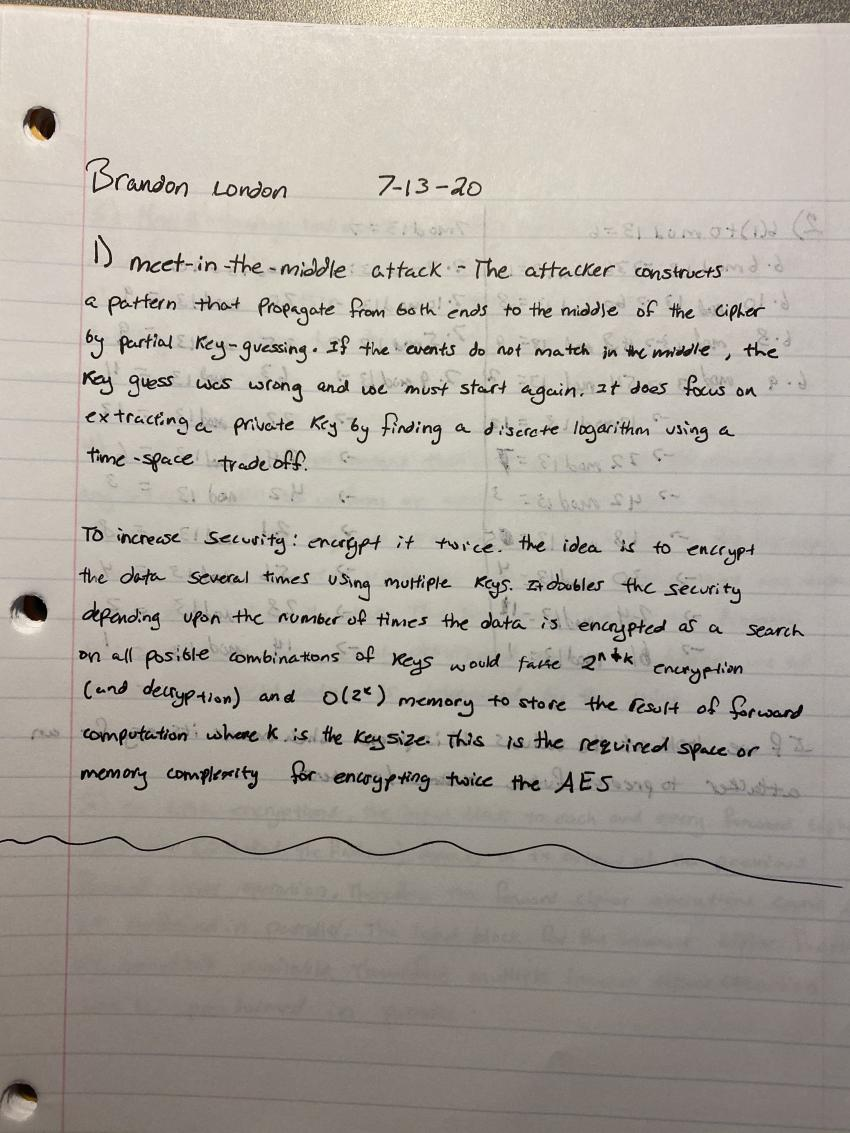 Brandon London 7-13-20
1) meet-in-the-middle attack - The attacker constructs
a pattern that propagate from both ends to the middle of the cipher
by partial key-guessing. If the events do not match in the middle, the
key guess was wrong and we must start again. It does focus on
extracting a private key by finding a discrete logarithm using a
time-space tradeoff.
To increase security: encrypt it twice. the idea is to encrypt
the data several times using multiple keys. It doubles the security
depending upon the number of times the data is encrypted as a search
on all posible combinations of keys would take 2^n+k encryption
(and decryption) and O(2^k) memory to store the result of forward
computation where k is the key size. This is the required space or
memory complexity for encrypting twice the AES